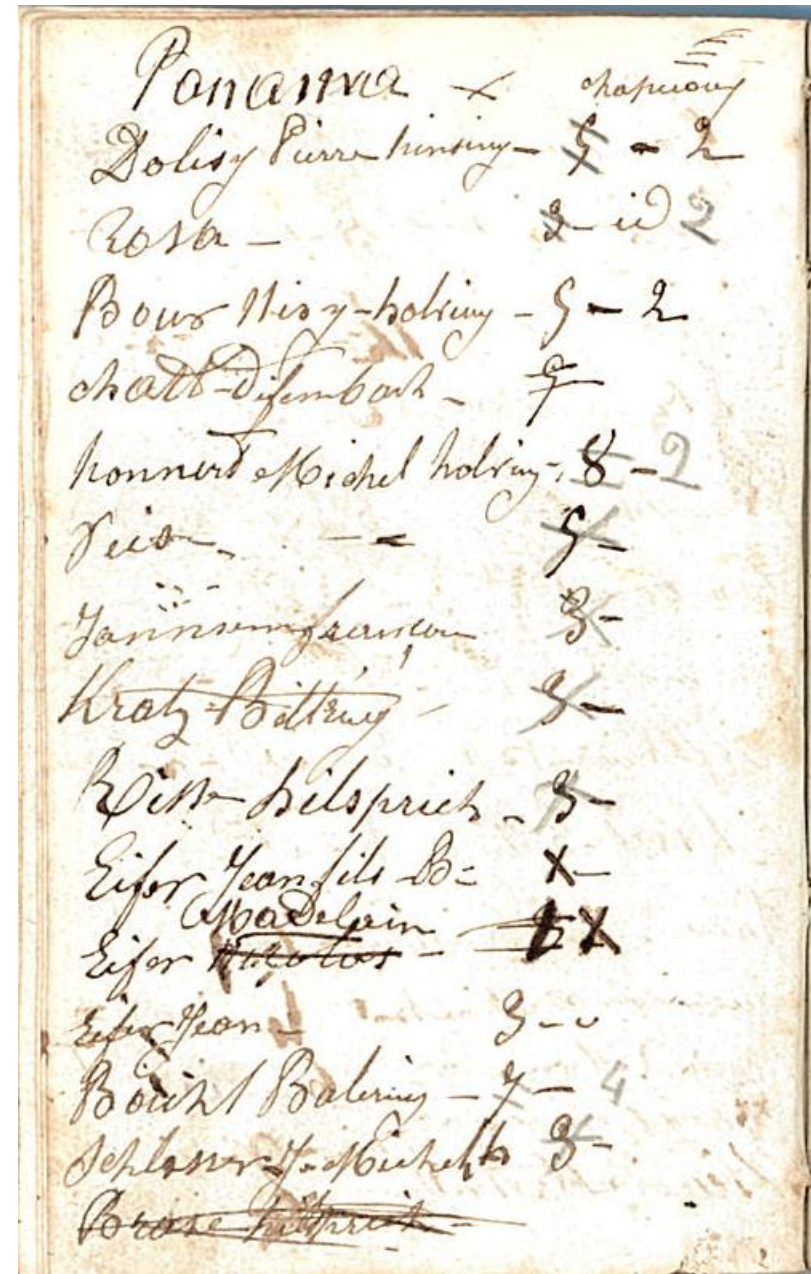 Panama x chapeaux
Dolisy Pierre hinsing - 5 - 2
Rosa - 3 - id 2
Bour holving - 5 - 2
chatt - Difembach - 5
honnert Michel holving - 8 - 2
- - 5 -
francois 3 -
Kratz - Bittring - 3 -
Risse - hilsprich - 3 -
Eifer Jean fils - B= X -
Madelain
Eifer Nicolas - X
Eifer Jean - 3 -
Balering - 7 - 4
Schlosser - J. Michel h 3 -
hilsprich -